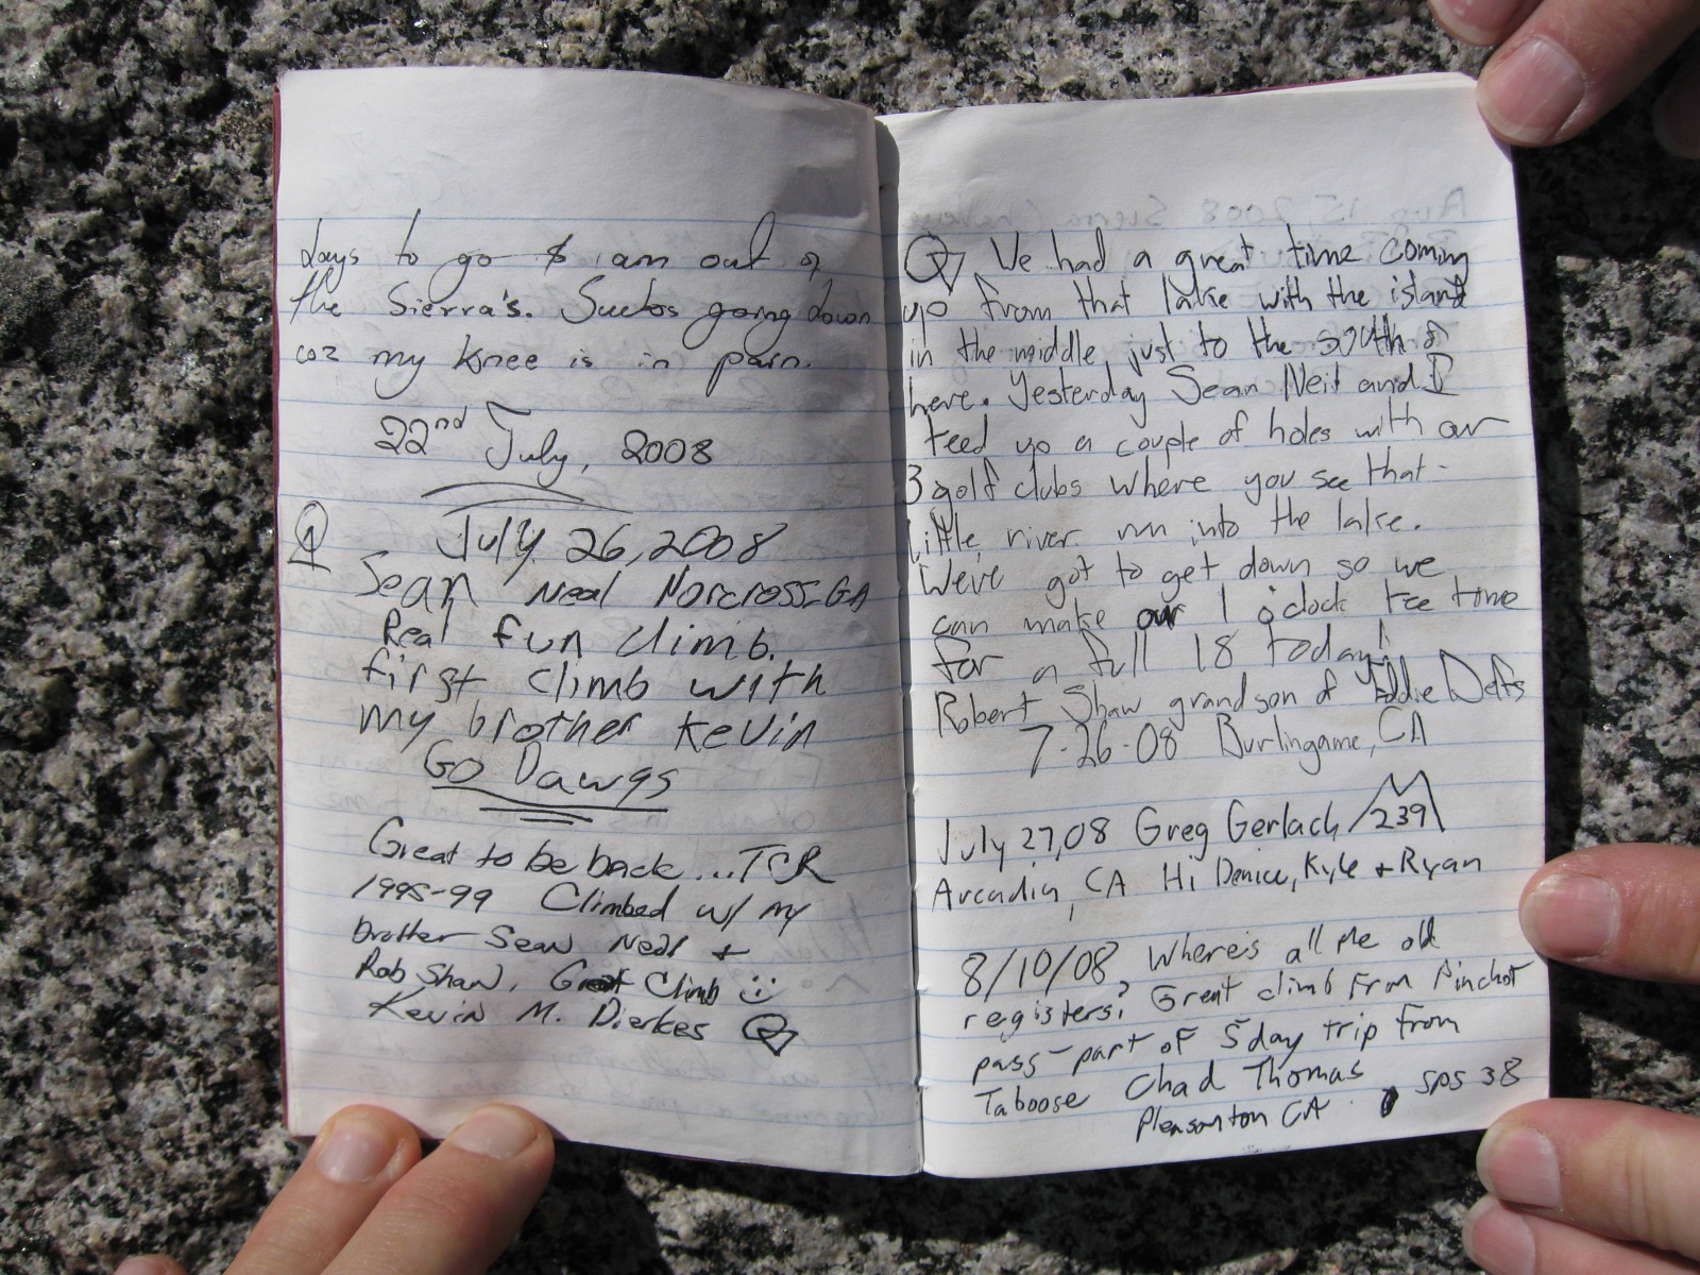 days to go & I am out of
the Sierra's. Sucks going down
coz my knee is in pain.
22nd July, 2008
July 26, 2008
Sean Neal Norcross-GA
Real fun climb.
first climb with
my brother Kevin
GO Dawgs
Great to be back...TCR
1995-99 Climbed w/ my
brother Sean Neal +
Rob Shaw. Great Climb :)
Kevin M. Dierkes
We had a great time coming
up from that lake with the island
in the middle, just to the south of
here. Yesterday Sean Neil and I
teed up a couple of holes with our
3 golf clubs where you see that
little river run into the lake.
We've got to get down so we
can make our 1 o'clock tee time
for a full 18 today!
Robert Shaw grandson of Eddie
7-26-08 Burlingame, CA
July 27, 08 Greg Gerlach 239
Arcadia, CA Hi Denice, Kyle + Ryan
8/10/08 Where's all the old
registers? Great climb from Pinchot
pass-part of 5 day trip from
Taboose Chad Thomas
Pleasanton CA SPS 38